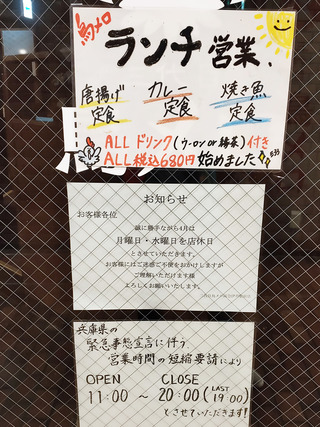 鳥メロ
ランチ営業、
唐揚げ定食
カレー定食
焼き魚定食
ALLドリンク(ウーロン or 緑茶)付き
ALL税込680円始めました
お知らせ
お客様各位
誠に勝手ながら4月は
月曜日・水曜日を店休日
とさせていただきます。
お客様にはご迷惑ご不便をおかけしますが
ご理解いただけます様
よろしくお願いいたします。
兵庫県の
緊急事態宣言に伴う
営業時間の短縮要請により
OPEN CLOSE
11:00 ～ 20:00 (LAST 19:00)
とさせていただきます!